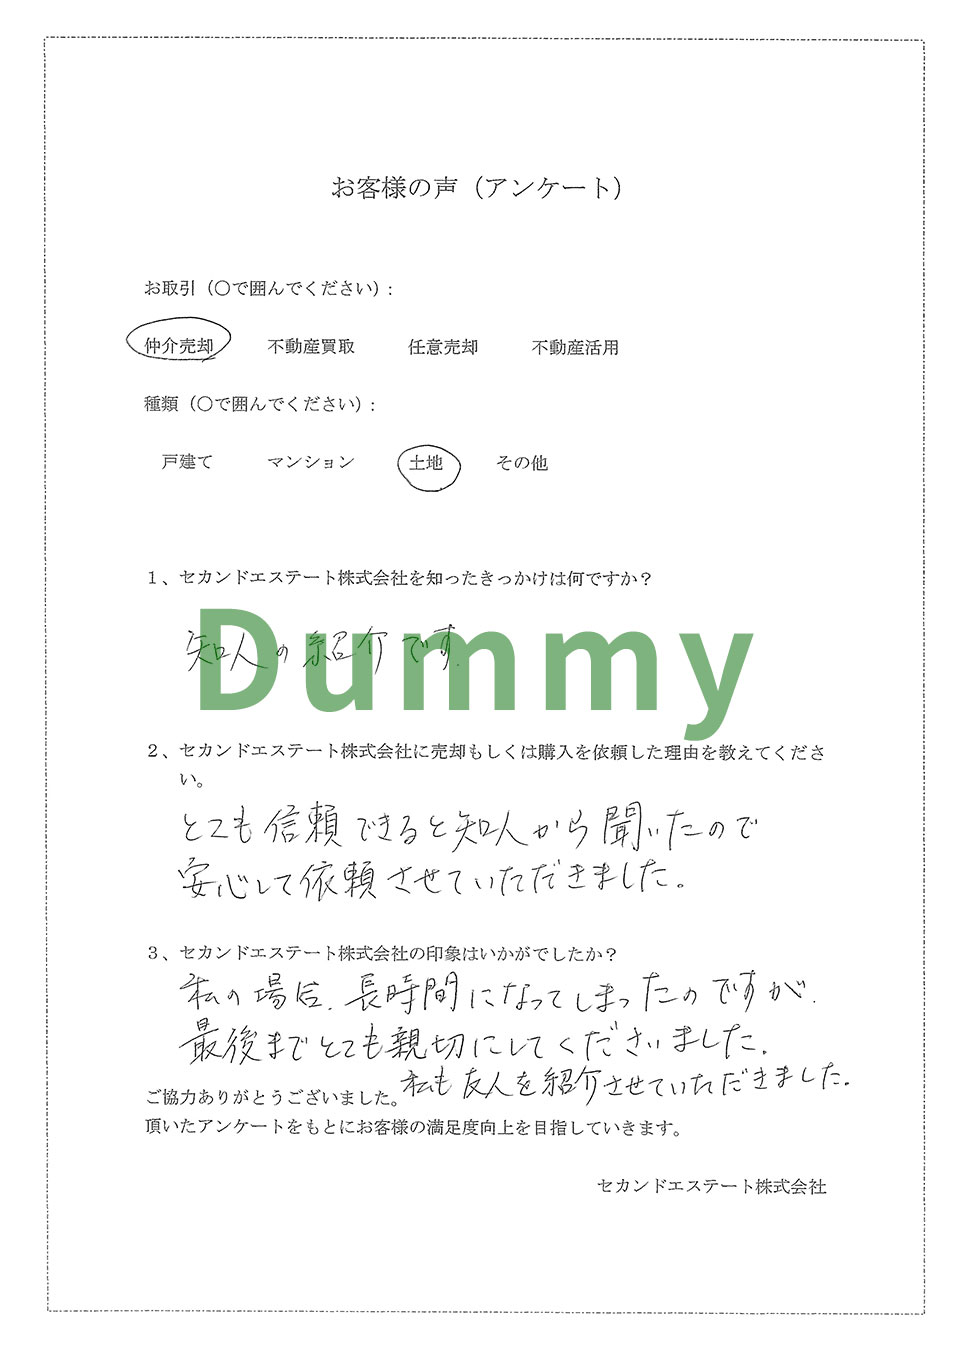 お客様の声（アンケート）
お取引（〇で囲んでください）:
仲介売却 不動産買取 任意売却 不動産活用
種類（〇で囲んでください）:
戸建て マンション 土地 その他
１、セカンドエステート株式会社を知ったきっかけは何ですか？
知人の紹介です.
Dummy
２、セカンドエステート株式会社に売却もしくは購入を依頼した理由を教えてくださ
い。
とても信頼できると知人から聞いたので
安心して依頼させていただきました。
３、セカンドエステート株式会社の印象はいかがでしたか？
私の場合、長時間になってしまったのですが、
最後までとても親切にしてくださいました。
私も友人を紹介させていただきました。
ご協力ありがとうございました。
頂いたアンケートをもとにお客様の満足度向上を目指していきます。
セカンドエステート株式会社